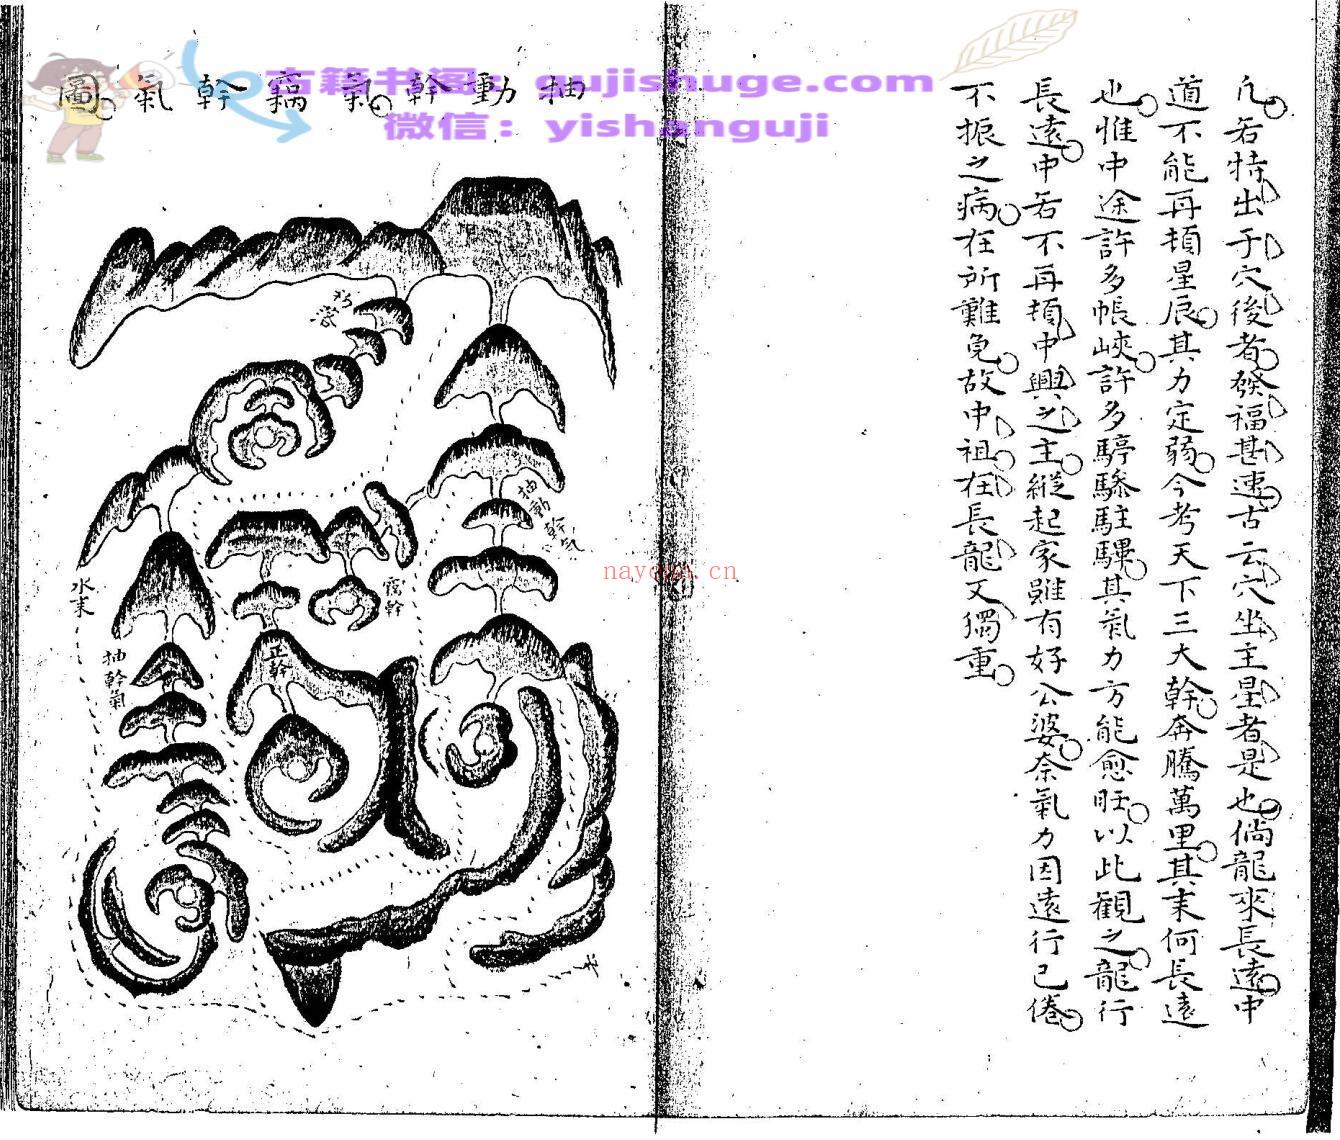 凡若特出于穴後者發福甚速古云穴坐主星者是也倘龍來長遠中
道不能再頓星辰其力定弱今考天下三大幹奔騰萬里其末何長遠
也惟中途許多帳峽許多驂駐其氣力方能愈旺以此觀之龍行
長遠中若不再頓中興之主縱起家雖有好公婆奈氣力因遠行已倦
不振之病在所難免故中祖在長龍又獨重
抽動幹氣竊幹氣圖
古籍书阁：gujishuge.com
微信：yishanguji
抽動幹氣
竊幹
正幹
水末
抽幹氣
nayona.cn